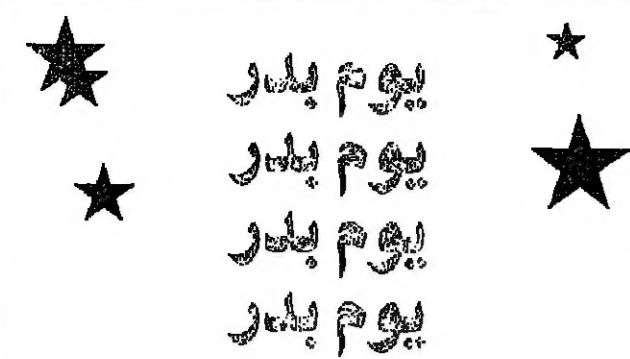 يوم بدر
يوم بدر
يوم بدر
يوم بدر